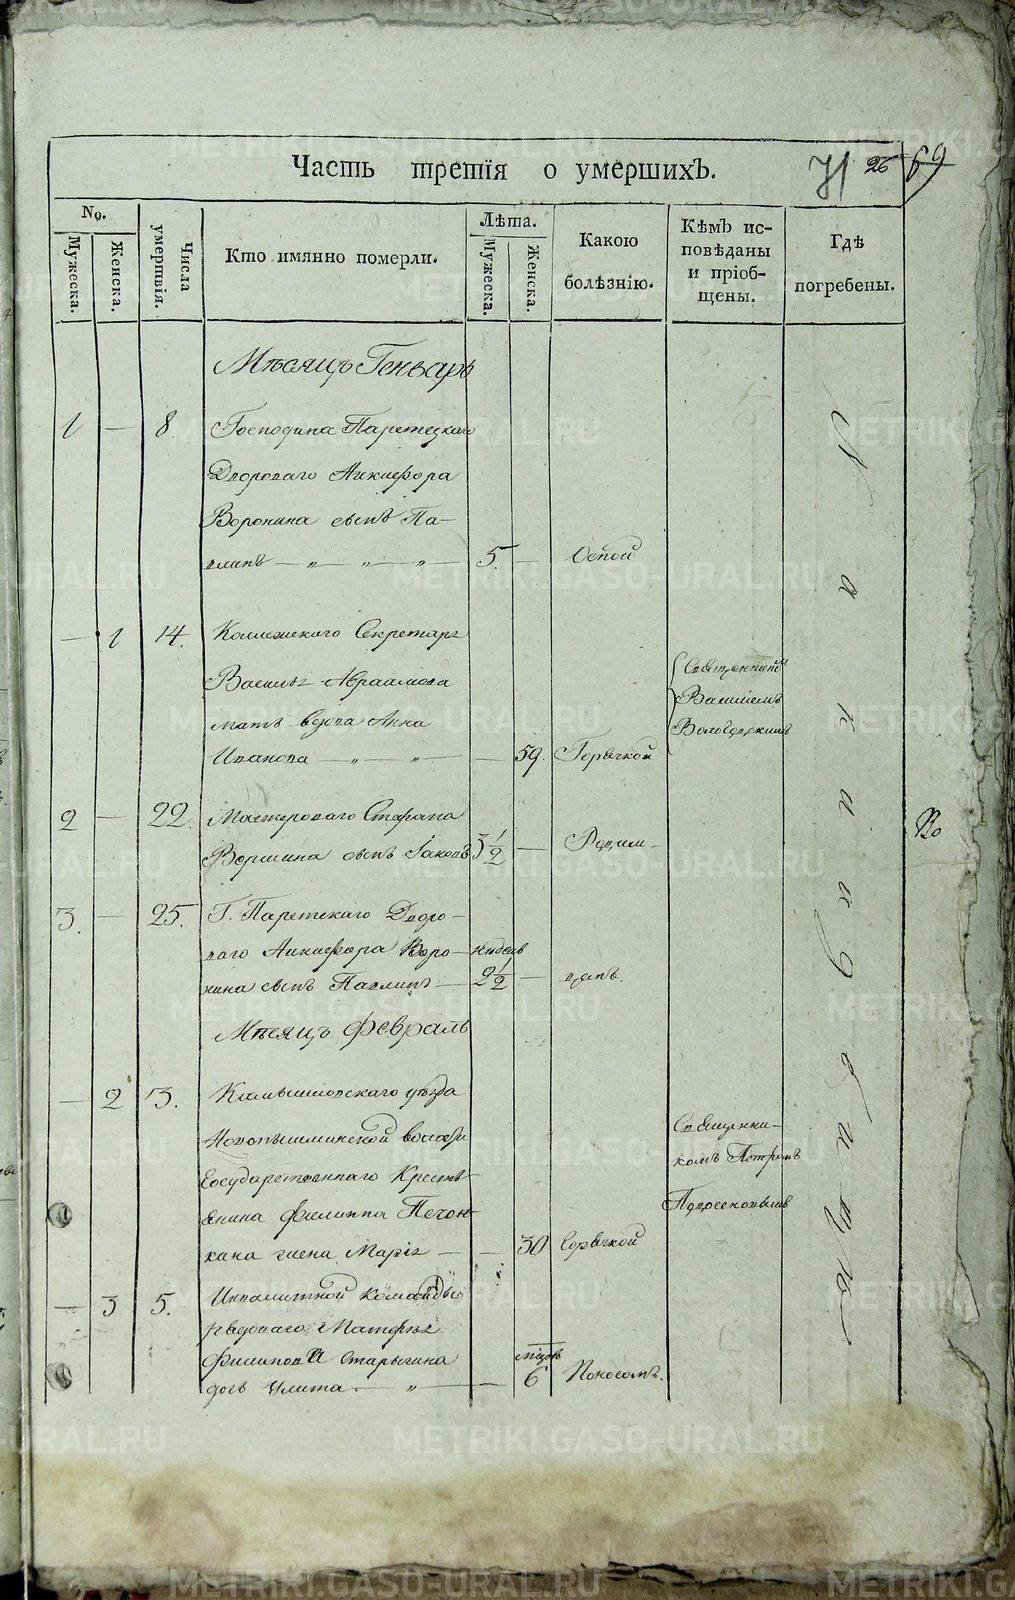 Часть третія о умершихъ.
71 26 69
№.
Мужеска.
Женска.
Числа умертвія.
Кто имянно померли.
Лѣта.
Мужеска.
Женска.
Какою болѣзнію.
Кѣмъ исповѣданы и пріобщены.
Гдѣ погребены.
Мѣсяцъ Генварь
1 — 8. Господина
Двороваго Анкифора
Воронина сынъ Па-
влинъ — „ — „ — „ — 5. — Оспой
— 1 14. Колежскаго Секретаря
Василья Абрамова
мать вдова Анна
Иванова — „ — „ — — 59. Горячкой
Священникомъ
Василіемъ
2 — 22. Мастероваго Стефана
сынъ Іаковъ 3 1/2 —
3. — 25. Г. Дворо-
ваго Анкифора Воро- недель
нина сынъ Павлинъ — 2 1/2 —
Мѣсяцъ Февраль
— 2 3. Камышловскаго уѣзда
Новопышминской волости
Государственнаго Кресть-
янина Филиппа Печон-
кина жена Марія — — 30 Горячкой
Священни-
комъ Петромъ
— 3 5. Инвалидной команды
рядоваго Матфѣя
Филипова Старыгина мѣсяцовъ
дочь Улита — „ — — 6 Поносомъ.
На кладбищѣ
По